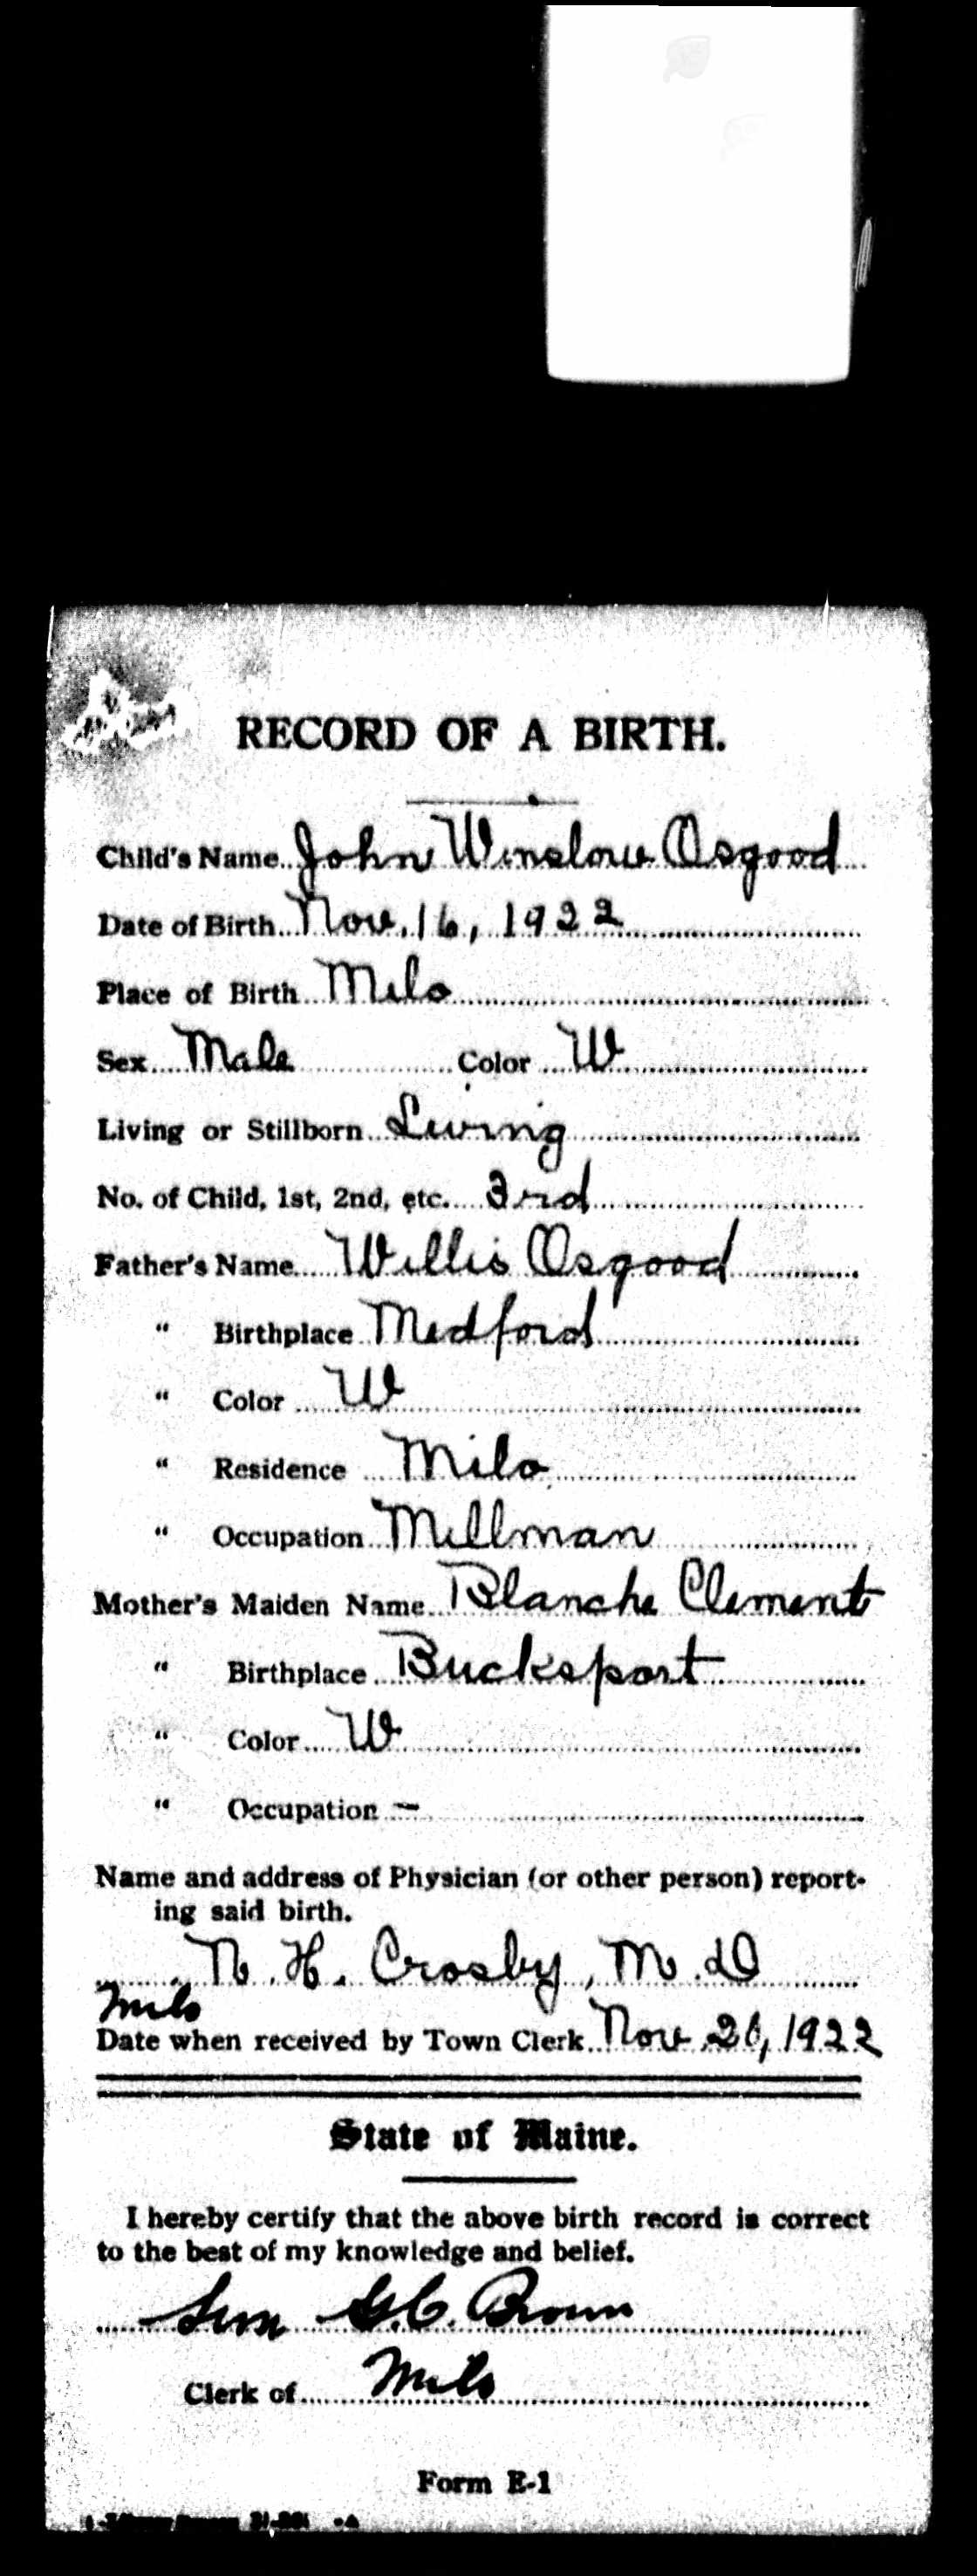 RECORD OF A BIRTH.
Child's Name John Winslow Osgood
Date of Birth Nov. 16, 1922
Place of Birth Milo
Sex Male Color W
Living or Stillborn Living
No. of Child, 1st, 2nd, etc. 3rd
Father's Name Willis Osgood
" Birthplace Medford
" Color W
" Residence Milo
" Occupation Millman
Mother's Maiden Name Blanche Clement
" Birthplace Bucksport
" Color W
" Occupation —
Name and address of Physician (or other person) report-
ing said birth.
N. H. Crosby, M. D
Milo
Date when received by Town Clerk Nov 26, 1922
State of Maine.
I hereby certify that the above birth record is correct
to the best of my knowledge and belief.
G. C. Brown
Clerk of Milo
Form E-1